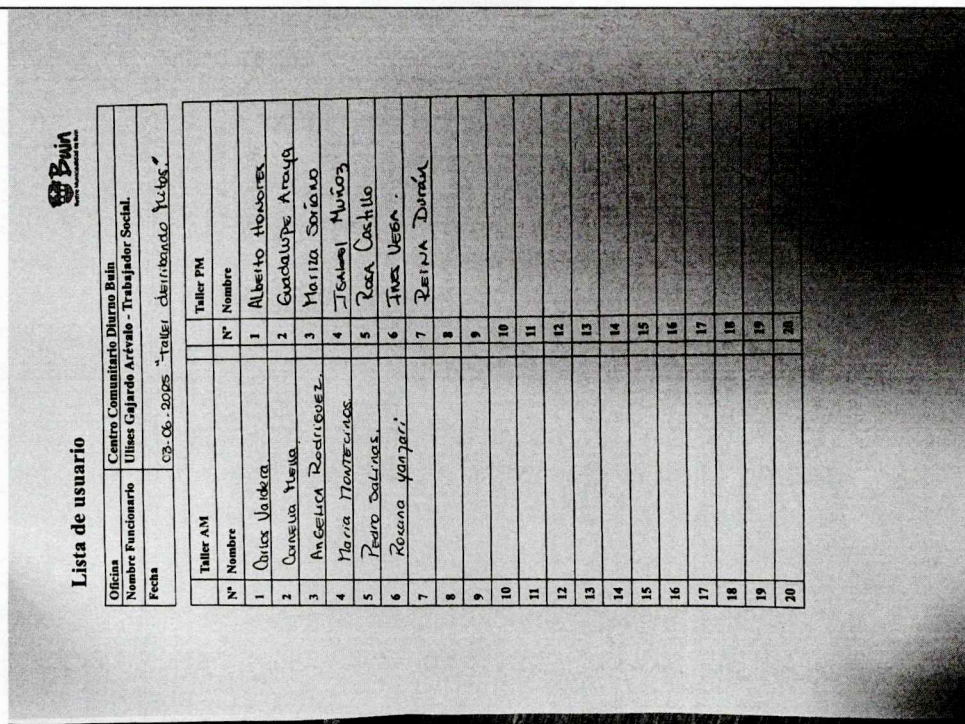 Buin
Lista de usuario
Oficina Centro Comunitario Diurno Buin
Nombre Funcionario Ulises Gajardo Arévalo - Trabajador Social.
Fecha 03-06-2005 "Taller derribando Mitos."
Taller AM Taller PM
N° Nombre N° Nombre
1 Carlos Valdera. 1 Alberto Honores
2 Camelia Mella 2 Guadalupe Araya
3 Angelica Rodriguez. 3 Mariza Soriano
4 Maria Montecinos 4 Isabel Muñoz
5 Pedro Salinas. 5 Rosa Castillo
6 Roxana yanzari 6 Ines Vega.
7 7 Reina Durán
8 8
9 9
10 10
11 11
12 12
13 13
14 14
15 15
16 16
17 17
18 18
19 19
20 20